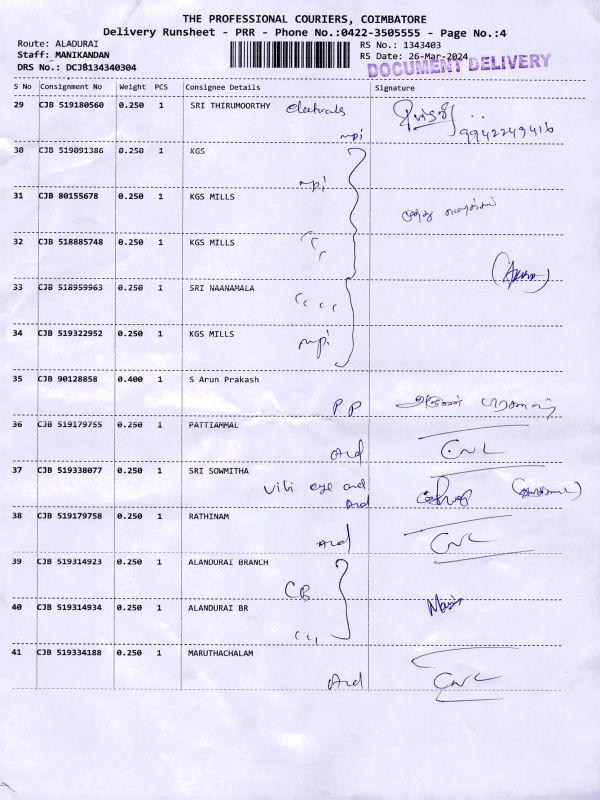 THE PROFESSIONAL COURIERS, COIMBATORE
Delivery Runsheet - PRR - Phone No.:0422-3505555 - Page No.:4
Route: ALADURAI
RS No.: 1343403
Staff: MANIKANDAN
RS Date: 26-Mar-2024
DRS No.: DCJB134340304
DOCUMENT DELIVERY
S No Consignment No Weight PCS Consignee Details Signature
29 CJB 519180560 0.250 1 SRI THIRUMOORTHY Electricals
mpi 9942249416
30 CJB 519091386 0.250 1 KGS
mpi
31 CJB 80155678 0.250 1 KGS MILLS
32 CJB 518885748 0.250 1 KGS MILLS
33 CJB 518959963 0.250 1 SRI NAANAMALA
34 CJB 519322952 0.250 1 KGS MILLS
mpi
35 CJB 90128858 0.400 1 S Arun Prakash
P.P அருண் பிரகாஷ்
36 CJB 519179755 0.250 1 PATTIAMMAL
Ald CNL
37 CJB 519338077 0.250 1 SRI SOWMITHA
eye and
Ald
38 CJB 519179758 0.250 1 RATHINAM
Ald CNL
39 CJB 519314923 0.250 1 ALANDURAI BRANCH
CB
40 CJB 519314934 0.250 1 ALANDURAI BR
41 CJB 519334188 0.250 1 MARUTHACHALAM
Ald CNL